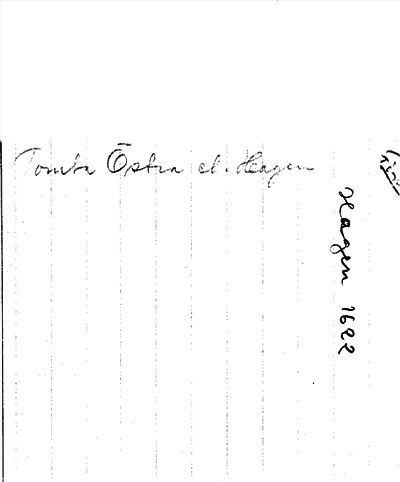 Tomta Östra el. Hagen
Hagen 1622